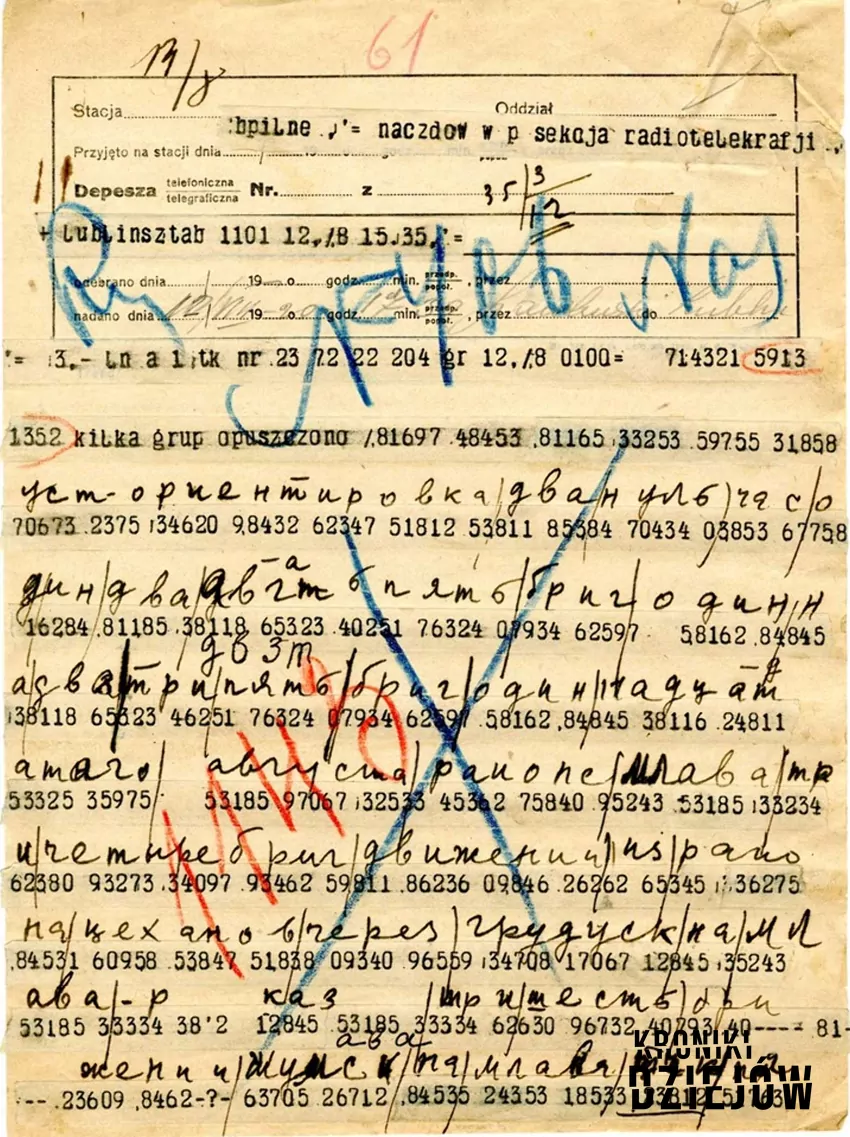 13/8 61
Stacja Oddział
bpilne naczdow w p sekcja radiotelekrafji
Przyjęto na stacji dnia
Depesza telefoniczna telegraficzna Nr. z 35 3/12
+ Lublinsztab 1101 12,/8 15.35,'=
odebrano dnia 19 o godz. min. przedp. popoł., przez z
nadano dnia 19 o godz. min. przedp. popoł., przez do
nr 23 72 22 204 gr 12,/8 0100= 714321 5913
1352 kilka grup opuszczono /,81697 48453 ,81165 33253 59755 31858
уст-ориентировка/два/нуль/час/о
70673 2375 34620 98432 62347 51812 53811 85384 70434 03853 67758
дин/два/ пять/бриг/один/н
16284 ,81185 38118 65323 40251 76324 07934 62597 58162 ,84845
а/два/три/пять/бриг/один/надцат
38118 65323 46251 76324 07934 62597 58162 ,84845 38116 24811
атаго/ августа/районе/млава/тр
53325 35975 53185 97067 32533 45362 75840 95243 53185 33234
и/четыре бриг/движении/из/райо
62380 93273 34097 93462 59811 86236 09846 26262 65345 36275
на/цеханов/через/грудуск/на/мл
,84531 60958 53847 51838 09340 96559 34708 17067 12845 35243
ава/-р каз /три шесть/бри
53185 33334 38'2 12845 53185 33334 62630 96732 40793 40---- 81-
жении/ /на/млава
---.23609 ,8462-?- 63705 26712 ,84535 24353 18533
KRONIKI
DZIEJÓW